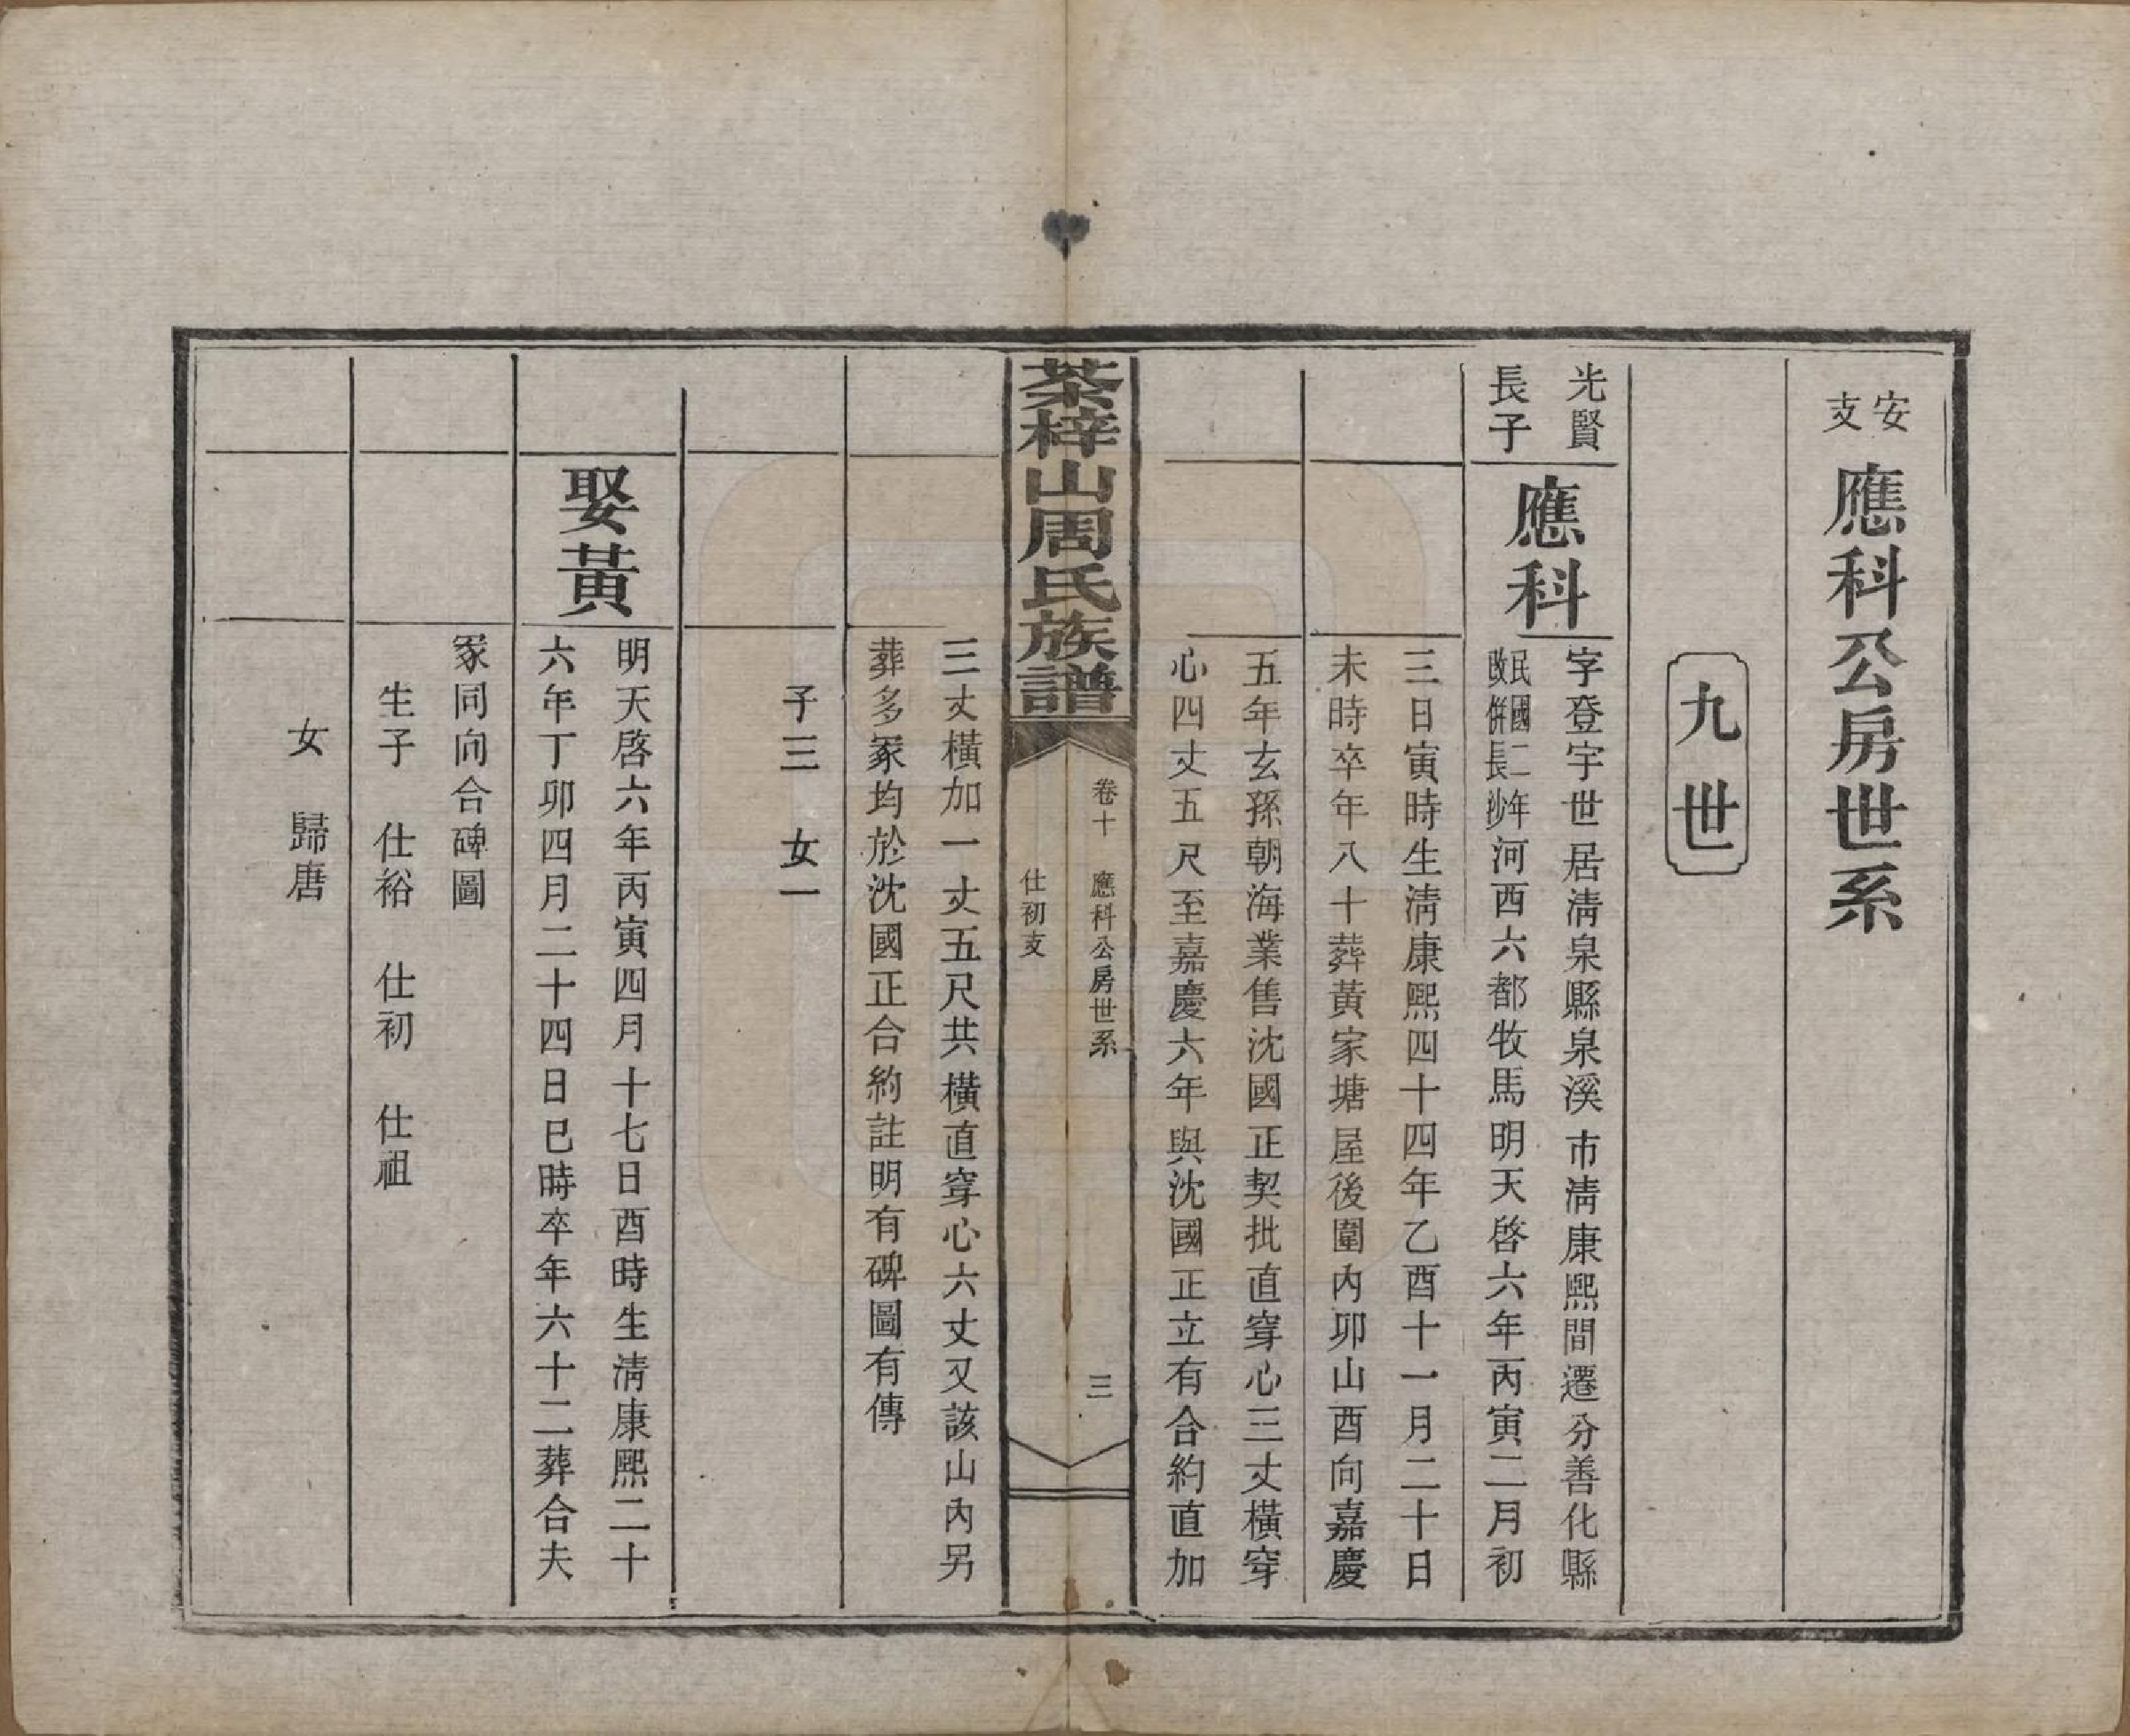 安支
應科公房世系
九世
光賢長子
應科
字登宇世居清泉縣泉溪市清康熙間遷分善化縣
民國二年
改併長沙
河西六都牧馬明天啓六年丙寅二月初
三日寅時生清康熙四十四年乙酉十一月二十日
未時卒年八十葬黃家塘屋後圍內卯山酉向嘉慶
五年玄孫朝海業售沈國正契批直穿心三丈橫穿
心四丈五尺至嘉慶六年與沈國正立有合約直加
茶梓山周氏族譜
卷十 應科公房世系 三
仕初支
三丈橫加一丈五尺共橫直穿心六丈又該山內另
葬多冢均於沈國正合約註明有碑圖有傳
子三 女一
娶黃
明天啓六年丙寅四月十七日酉時生清康熙二十
六年丁卯四月二十四日巳時卒年六十二葬合夫
冢同向合碑圖
生子 仕裕 仕初 仕祖
女 歸唐